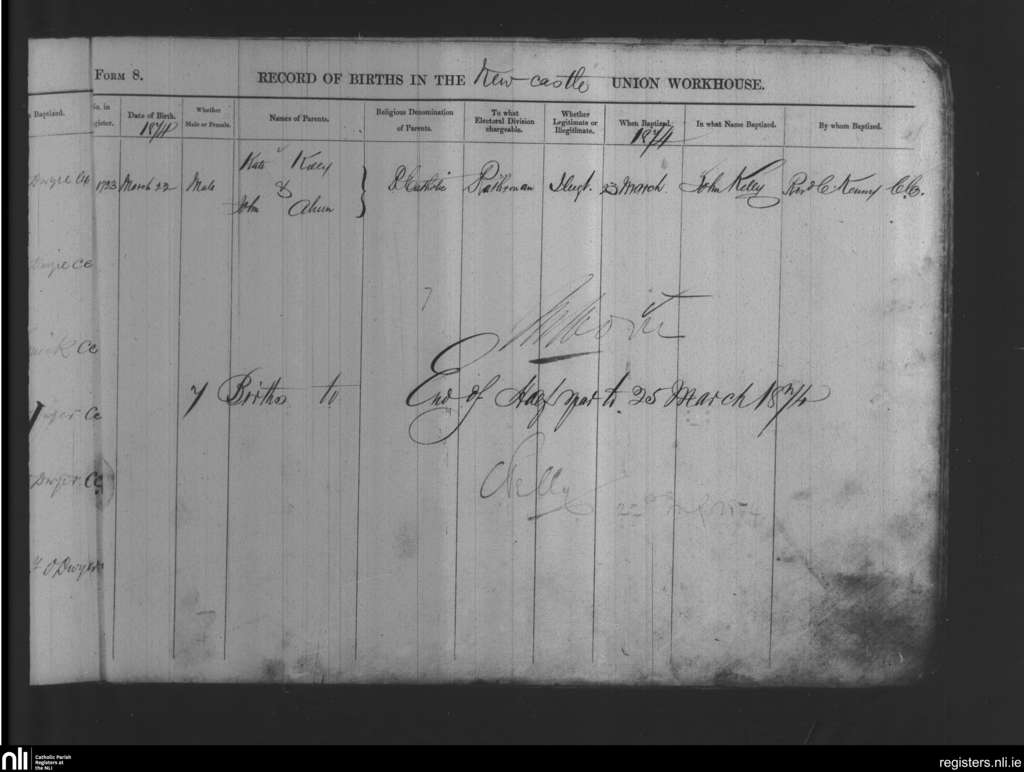 FORM 8.
RECORD OF BIRTHS IN THE New castle UNION WORKHOUSE.
Baptized.
No. in
Register.
Date of Birth.
1874
Whether
Male or Female.
Names of Parents.
Religious Denomination
of Parents.
To what
Electoral Division
chargeable.
Whether
Legitimate or
Illegitimate.
When Baptized.
1874
In what Name Baptized.
By whom Baptized.
Dwyer CC
1723 March 22 Male
Kate Kelly
&
John Ahern
R Catholic
Illegt. 23 March John Kelly Revd C Kenny CC.
CC
CC
7 Births to End of Half year to 25 March 1874
CC
Dwyer. CC
O Dwyer
nli
Catholic Parish
Registers at
the NLI
registers.nli.ie